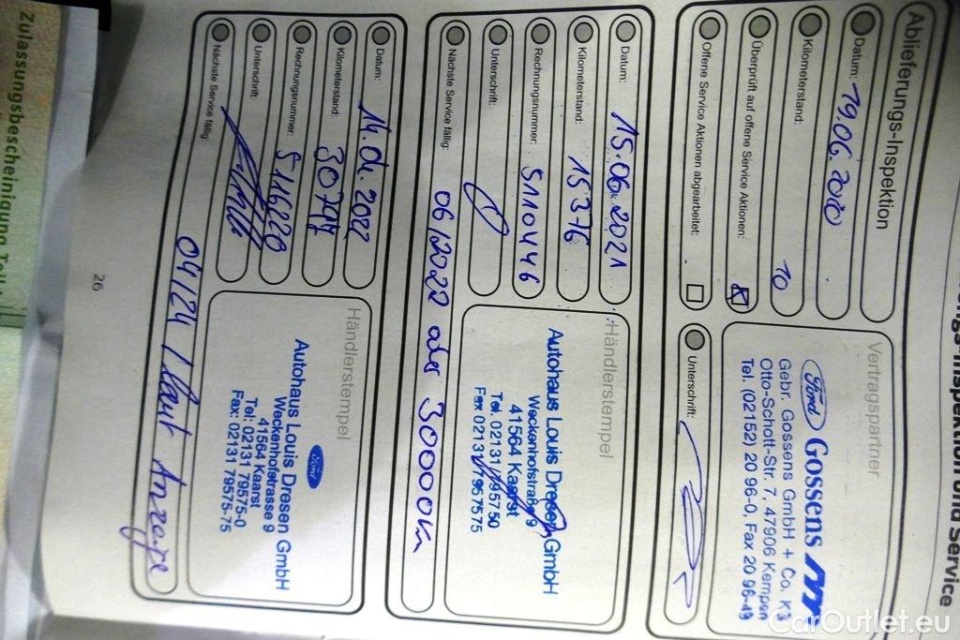 Ablieferungs-Inspektion
Datum: 19.06.2020
Kilometerstand: 10
Überprüft auf offene Service Aktionen:
Offene Service Aktionen abgearbeitet:
Vertragspartner
Ford GOSSENS
Gebr. Gossens GmbH + Co. KG
Otto-Schott-Str. 7, 47906 Kempen
Tel. (02152) 20 96-0, Fax 20 96-49
Unterschrift:
Datum: 15.06.2021
Kilometerstand: 15376
Rechnungsnummer: S110446
Unterschrift:
Nächste Service fällig: 06/2022 oder 30000km
Händlerstempel
Autohaus Louis Dresen GmbH
Weckenhofstraße 9
41564 Kaarst
Tel. 02131/795750
Fax 02131/7957575
Datum: 14.04.2022
Kilometerstand:
Rechnungsnummer: S116220
Unterschrift:
Nächste Service fällig: 04/24 / laut Anzeige
Händlerstempel
Ford
Autohaus Louis Dresen GmbH
Weckenhofstrasse 9
41564 Kaarst
Tel: 02131 79575-0
Fax: 02131 79575-75
26
Zulassungsbescheinigung Teil
CarOutlet.eu